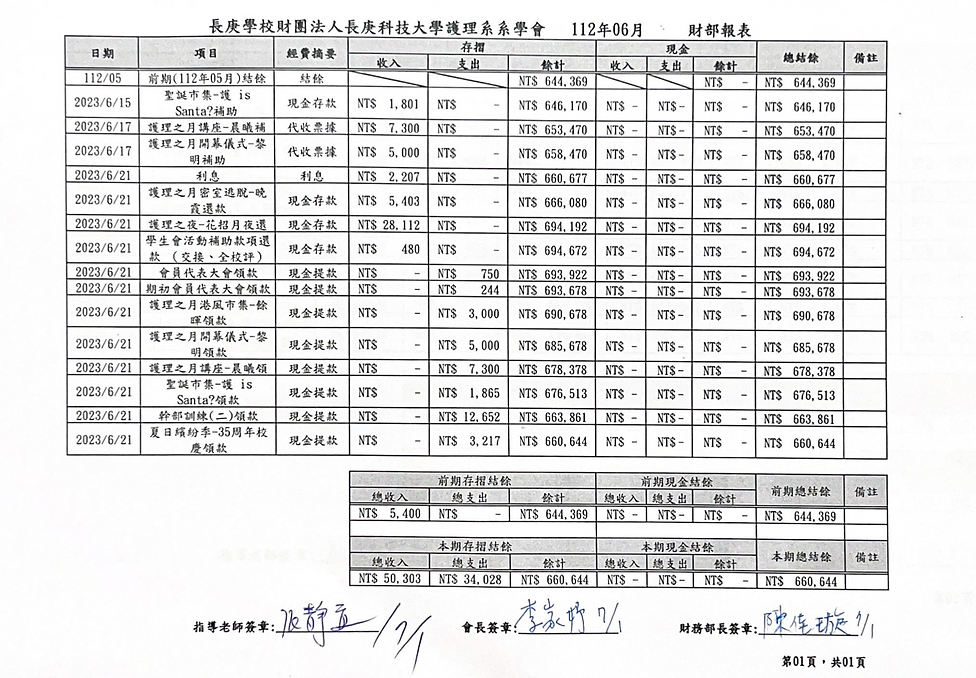 長庚學校財團法人長庚科技大學護理系系學會 112年06月 財部報表
日期 項目 經費摘要 存摺 現金 總結餘 備註
收入 支出 餘計 收入 支出 餘計
112/05 前期(112年05月)結餘 結餘 NT$ 644,369 NT$ - NT$ 644,369
2023/6/15 聖誕市集-護 is Santa?補助 現金存款 NT$ 1,801 NT$ - NT$ 646,170 NT$ - NT$ - NT$ - NT$ 646,170
2023/6/17 護理之月講座-晨曦補 代收票據 NT$ 7,300 NT$ - NT$ 653,470 NT$ - NT$ - NT$ - NT$ 653,470
2023/6/17 護理之月開幕儀式-黎明補助 代收票據 NT$ 5,000 NT$ - NT$ 658,470 NT$ - NT$ - NT$ - NT$ 658,470
2023/6/21 利息 利息 NT$ 2,207 NT$ - NT$ 660,677 NT$ - NT$ - NT$ - NT$ 660,677
2023/6/21 護理之月密室逃脫-晚霞還款 現金存款 NT$ 5,403 NT$ - NT$ 666,080 NT$ - NT$ - NT$ - NT$ 666,080
2023/6/21 護理之夜-花招月夜還 現金存款 NT$ 28,112 NT$ - NT$ 694,192 NT$ - NT$ - NT$ - NT$ 694,192
2023/6/21 學生會活動補助款項還款 (交換、全校評) 現金存款 NT$ 480 NT$ - NT$ 694,672 NT$ - NT$ - NT$ - NT$ 694,672
2023/6/21 會員代表大會領款 現金提款 NT$ - NT$ 750 NT$ 693,922 NT$ - NT$ - NT$ - NT$ 693,922
2023/6/21 期初會員代表大會領款 現金提款 NT$ - NT$ 244 NT$ 693,678 NT$ - NT$ - NT$ - NT$ 693,678
2023/6/21 護理之月港風市集-餘暉領款 現金提款 NT$ - NT$ 3,000 NT$ 690,678 NT$ - NT$ - NT$ - NT$ 690,678
2023/6/21 護理之月開幕儀式-黎明領款 現金提款 NT$ - NT$ 5,000 NT$ 685,678 NT$ - NT$ - NT$ - NT$ 685,678
2023/6/21 護理之月講座-晨曦領 現金提款 NT$ - NT$ 7,300 NT$ 678,378 NT$ - NT$ - NT$ - NT$ 678,378
2023/6/21 聖誕市集-護 is Santa?領款 現金提款 NT$ - NT$ 1,865 NT$ 676,513 NT$ - NT$ - NT$ - NT$ 676,513
2023/6/21 幹部訓練(二)領款 現金提款 NT$ - NT$ 12,652 NT$ 663,861 NT$ - NT$ - NT$ - NT$ 663,861
2023/6/21 夏日繽紛季-35周年校慶領款 現金提款 NT$ - NT$ 3,217 NT$ 660,644 NT$ - NT$ - NT$ - NT$ 660,644
前期存摺結餘 前期現金結餘 前期總結餘 備註
總收入 總支出 餘計 總收入 總支出 餘計
NT$ 5,400 NT$ - NT$ 644,369 NT$ - NT$ - NT$ - NT$ 644,369
本期存摺結餘 本期現金結餘 本期總結餘 備註
總收入 總支出 餘計 總收入 總支出 餘計
NT$ 50,303 NT$ 34,028 NT$ 660,644 NT$ - NT$ - NT$ - NT$ 660,644
指導老師簽章: 7/1 會長簽章:李家妤 7/1 財務部長簽章:陳佳璇 7/1
第01頁，共01頁